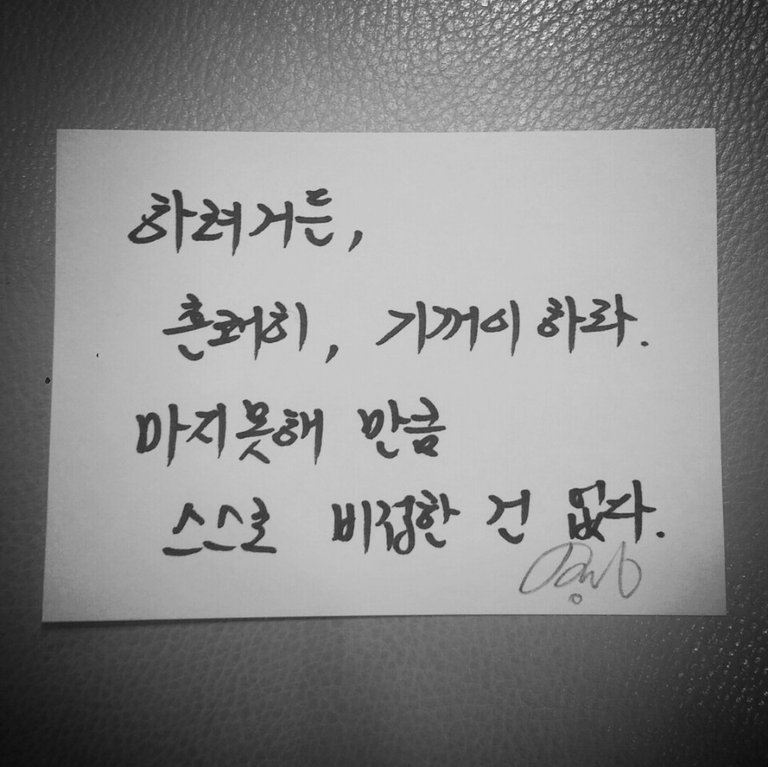 하려거든,
흔쾌히, 기꺼이 하라.
마지못해 만큼
스스로 비겁한 건 없다.